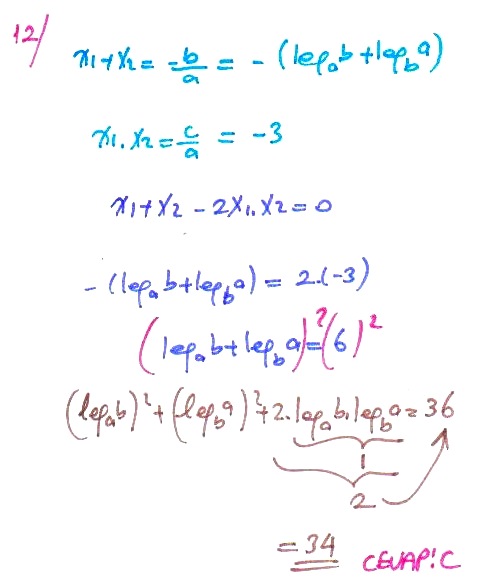 12/
x₁+x₂ = -b/a = -(log_a b + log_b a)
x₁.x₂ = c/a = -3
x₁+x₂ - 2x₁.x₂ = 0
-(log_a b + log_b a) = 2.(-3)
(log_a b + log_b a)² = (6)²
(log_a b)² + (log_b a)² + 2.log_a b.log_b a = 36
1
2
= 34 CEVAP: C